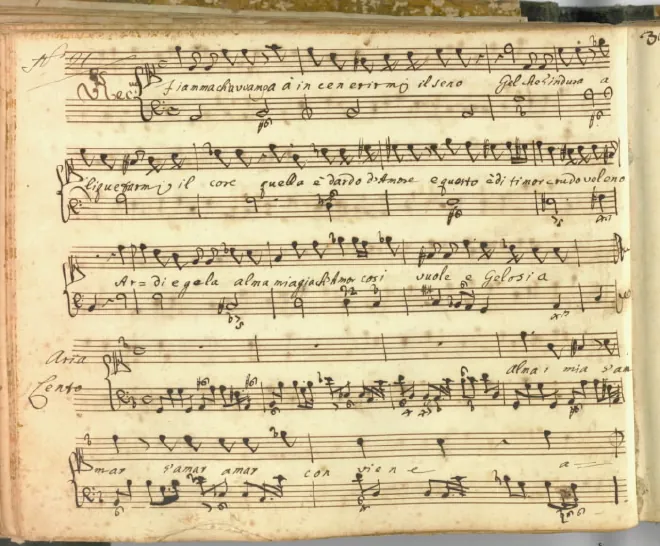 Rec.vo
fiamma ch'avvampa à incenerirmi il seno Gel che indura a
liquefarmi il core quella è dardo d'Amore e questo è di timor crudo veleno
Ar= di e gela alma mia già ch'Amor così vuole e Gelosia
Aria
Lento
Alma mia s'a
mar s'amar amar conviene a